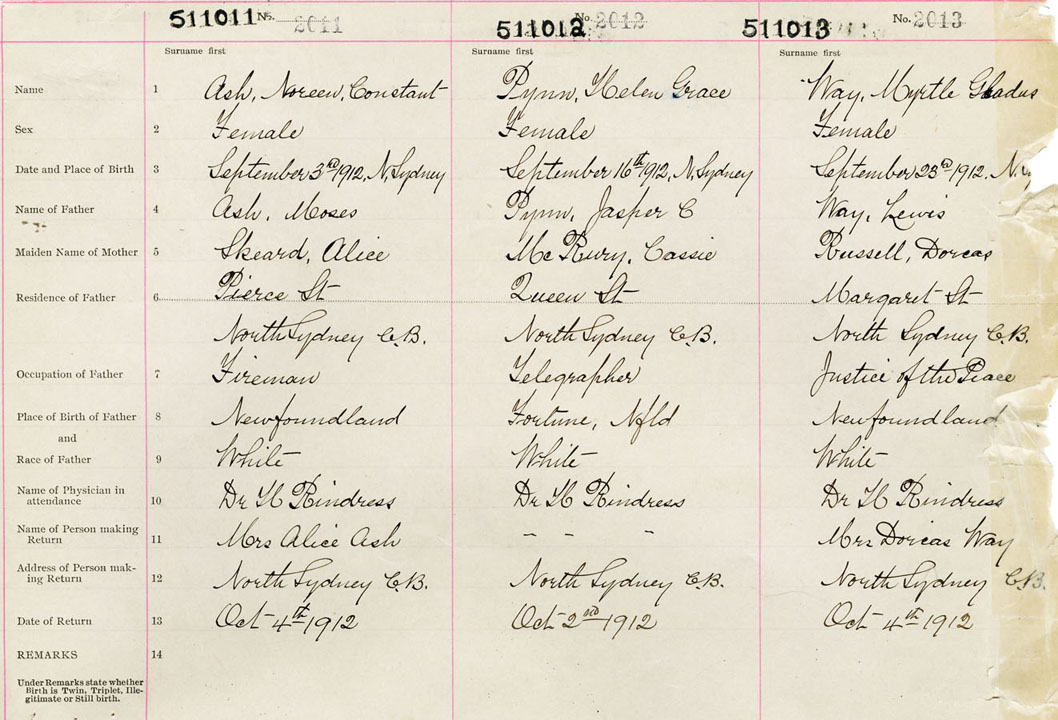 511011 No. 2011 511012 No. 2012 511013 No. 2013
Surname first Surname first Surname first
Name 1 Ash, Noreen, Constant Pynn, Helen Grace Way, Myrtle Gladus
Sex 2 Female Female Female
Date and Place of Birth 3 September 3rd 1912, N. Sydney September 16th 1912, N. Sydney September 23rd 1912. N.
Name of Father 4 Ash, Moses Pynn, Jasper C Way, Lewis
Maiden Name of Mother 5 Skeard, Alice McRury, Cassie Russell, Dorcas
Residence of Father 6 Pierce St Queen St Margaret St
North Sydney C.B. North Sydney C.B. North Sydney C.B.
Occupation of Father 7 Fireman Telegrapher Justice of the Peace
Place of Birth of Father 8 Newfoundland Fortune, Nfld Newfoundland
and
Race of Father 9 White White White
Name of Physician in
attendance 10 Dr H Rindress Dr H Rindress Dr H Rindress
Name of Person making
Return 11 Mrs Alice Ash " " " Mrs Dorcas Way
Address of Person mak-
ing Return 12 North Sydney C.B. North Sydney C.B. North Sydney C.B.
Date of Return 13 Oct 4th 1912 Oct 2nd 1912 Oct 4th 1912
REMARKS 14
Under Remarks state whether
Birth is Twin, Triplet, Ille-
gitimate or Still birth.